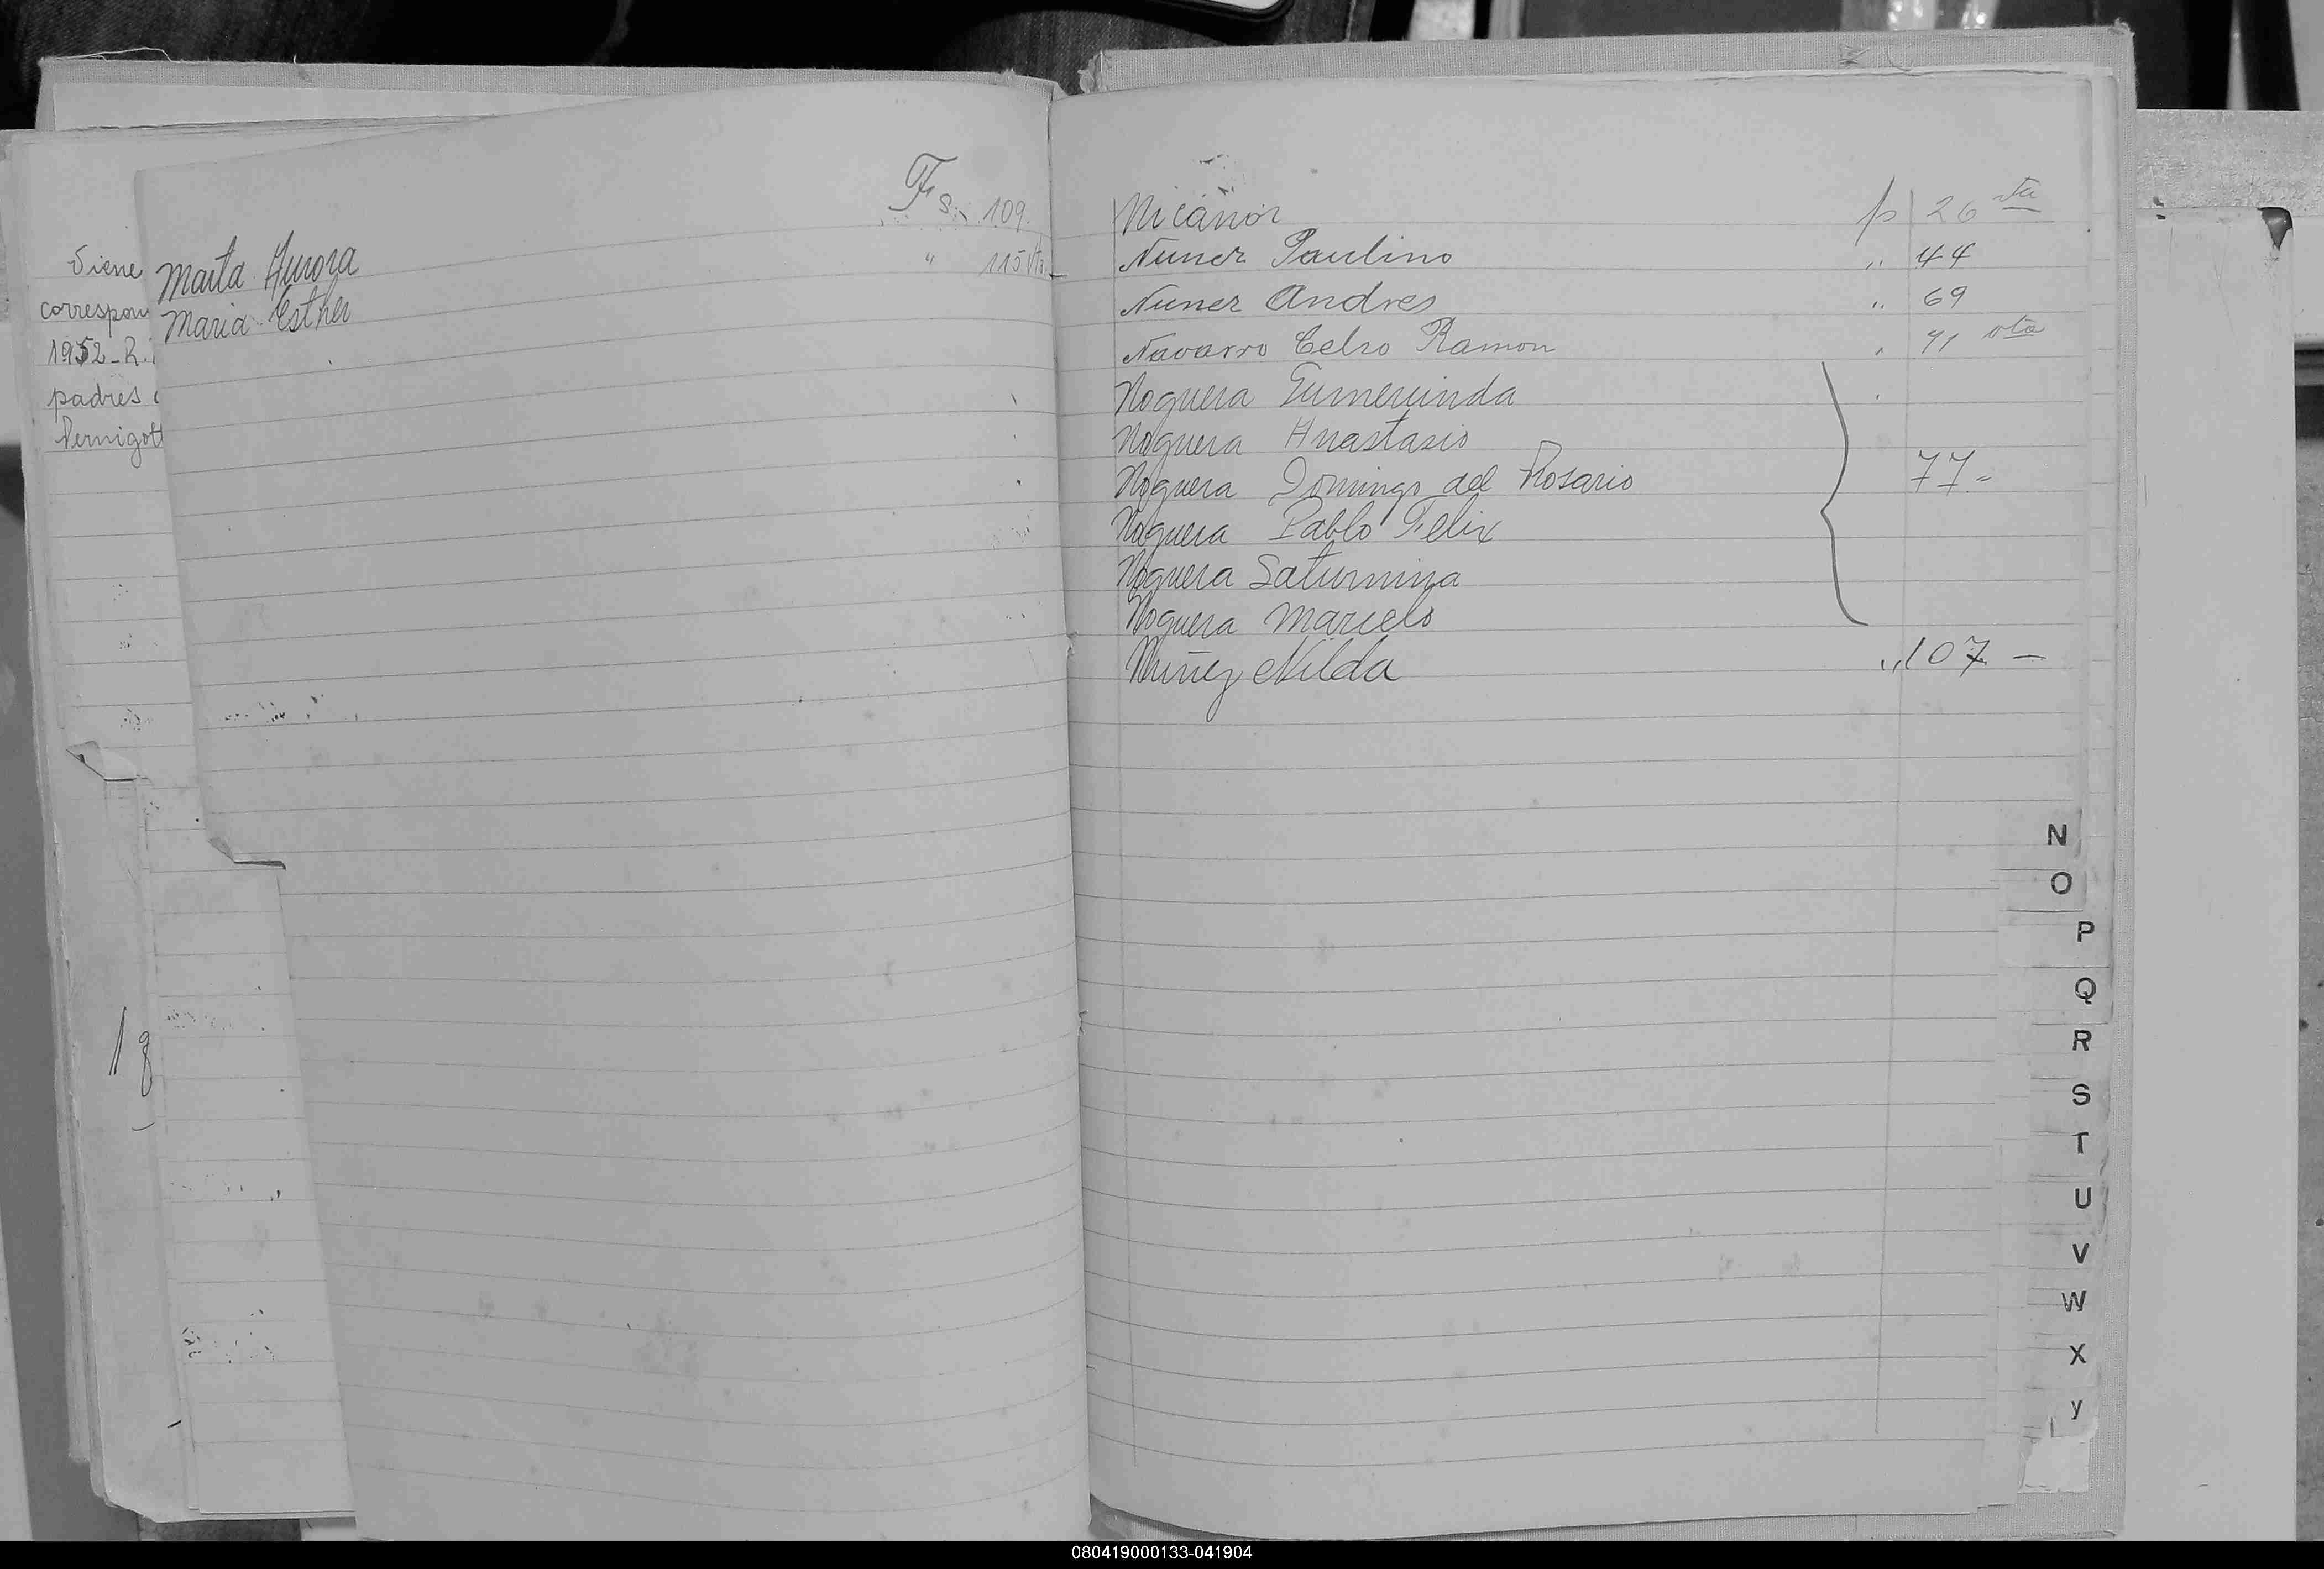 Viene
correspon
1952-R.
padres
Pernigott
Fs. 109.
Marta Aurora " 115 Vta.
Maria Esther
Nicanor p 26 vta
Nunez Paulino " 44
Nunez Andres " 69
Navarro Celso Ramon " 71 vta
Noguera
Noguera Anastasio
Noguera Domingo del Rosario 77.-
Noguera Pablo Felix
Noguera Saturnina
Noguera Marcelo
Nuñez Nilda " 107 -
N
O
P
Q
R
S
T
U
V
W
X
y
080419000133-041904